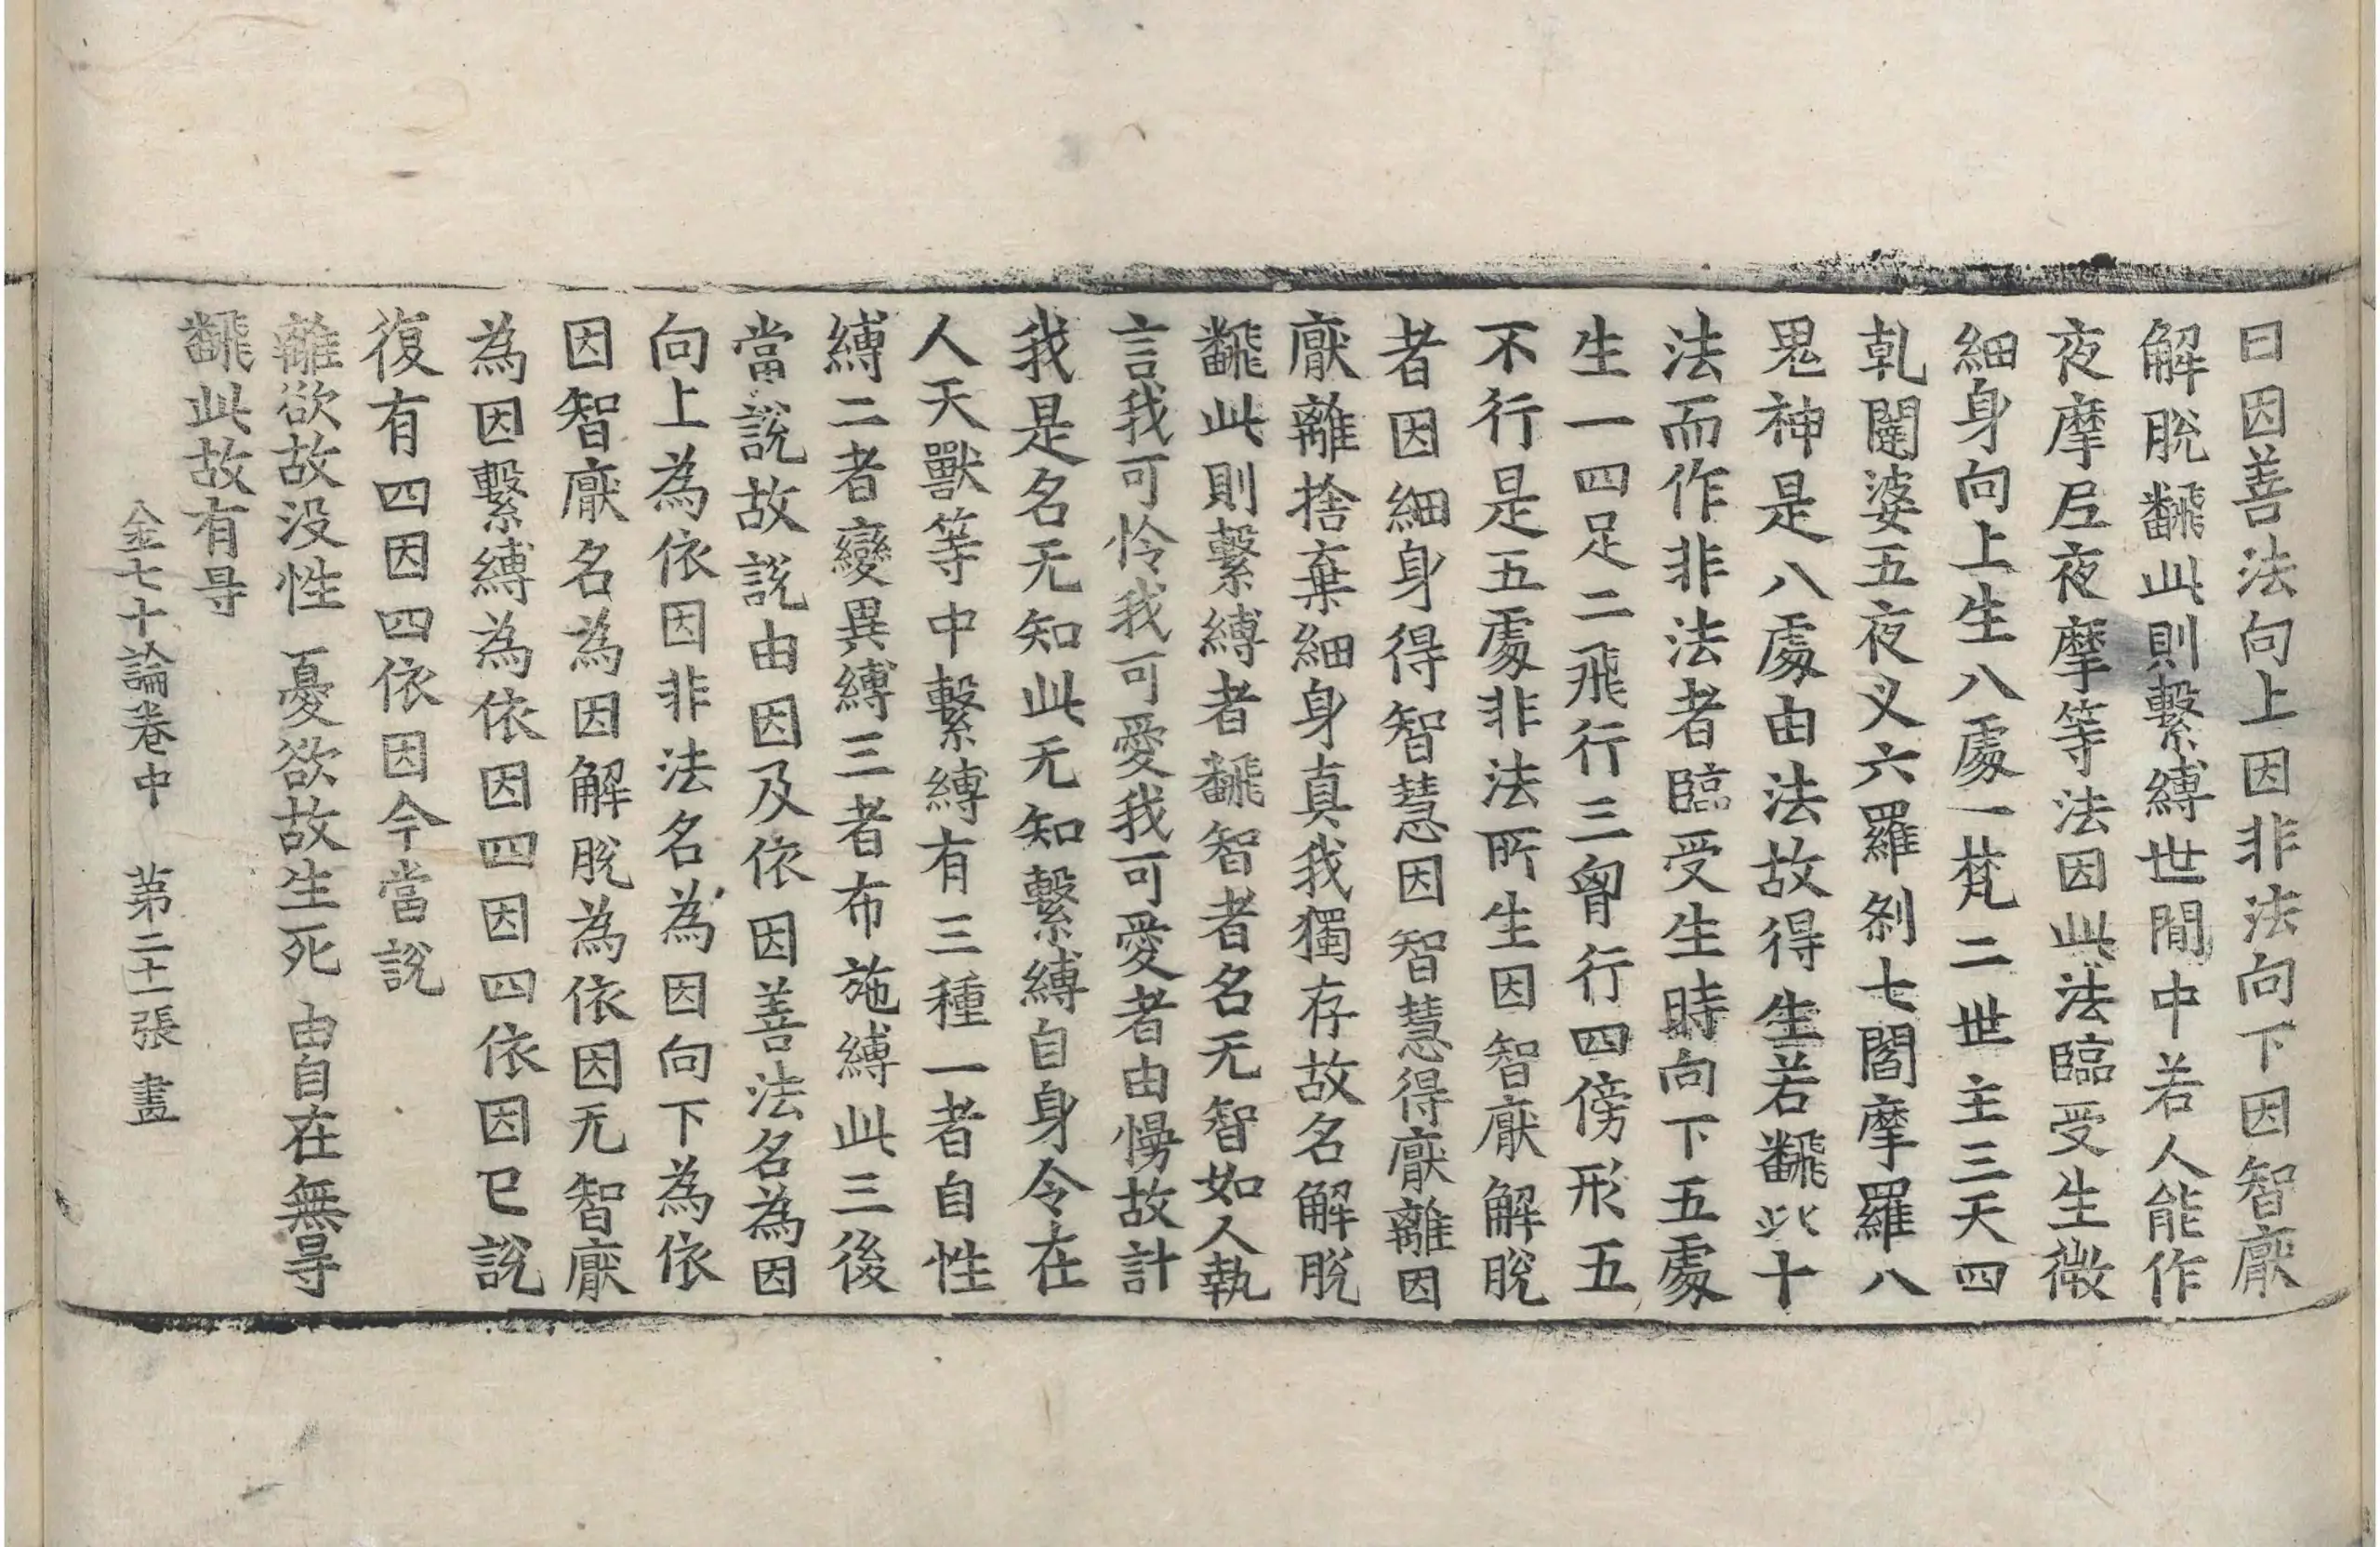 曰因善法向上因非法向下因智厭
解脫飜此則繫縛世間中若人能作
夜摩尼夜摩等法因此法臨受生微
細身向上生八處一梵二世主三天四
乹闥婆五夜叉六羅剎七閻摩羅八
鬼神是八處由法故得生若飜此十
法而作非法者臨受生時向下五處
生一四足二飛行三胷行四傍形五
不行是五處非法所生因智厭解脫
者因細身得智慧因智慧得厭離因
厭離捨棄細身真我獨存故名解脫
飜此則繫縛者飜智者名无智如人執
言我可怜我可愛我可愛者由慢故計
我是名无知此无知繫縛自身令在
人天獸等中繫縛有三種一者自性
縛二者變異縛三者布施縛此三後
當說故說由因及依因善法名為因
向上為依因非法名為因向下為依
因智厭名為因解脫為依因无智厭
為因繫縛為依因四因四依因已說
復有四因四依因今當說
離欲故没性 憂欲故生死 由自在無㝵
飜此故有㝵
金七十論卷中 第二十一張 畫